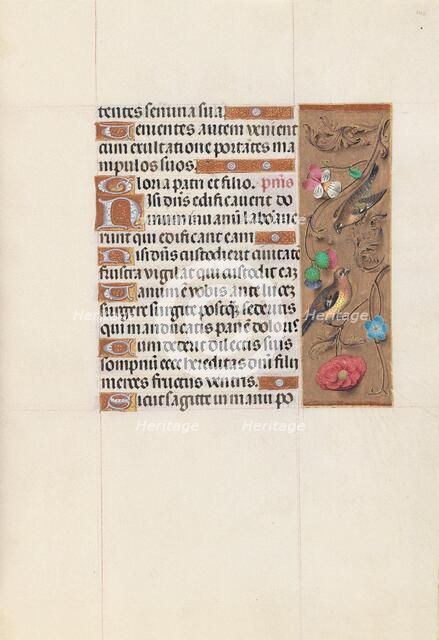 tentes semina sua.
Venientes autem venient
cum exultatione portātes ma
nipulos suos.
Gloria patri et filio. p̄nis
Nisi dn̄s edificauerit do
mum in uanū laboraue
runt qui edificant eam
Nisi dn̄s custodierit ciuitatē
frustra vigilat qui custodit eaȝ
Uanum ē vobis ante luceȝ
surgere surgite postqȝ sederitis
qui manducatis panē doloris
Cum dederit dilectis suis
sompnū ecce hereditas dn̄i filij
merces fructus ventris.
Sicut sagitte in manu po
Heritage Heritage
Heritage Heritage